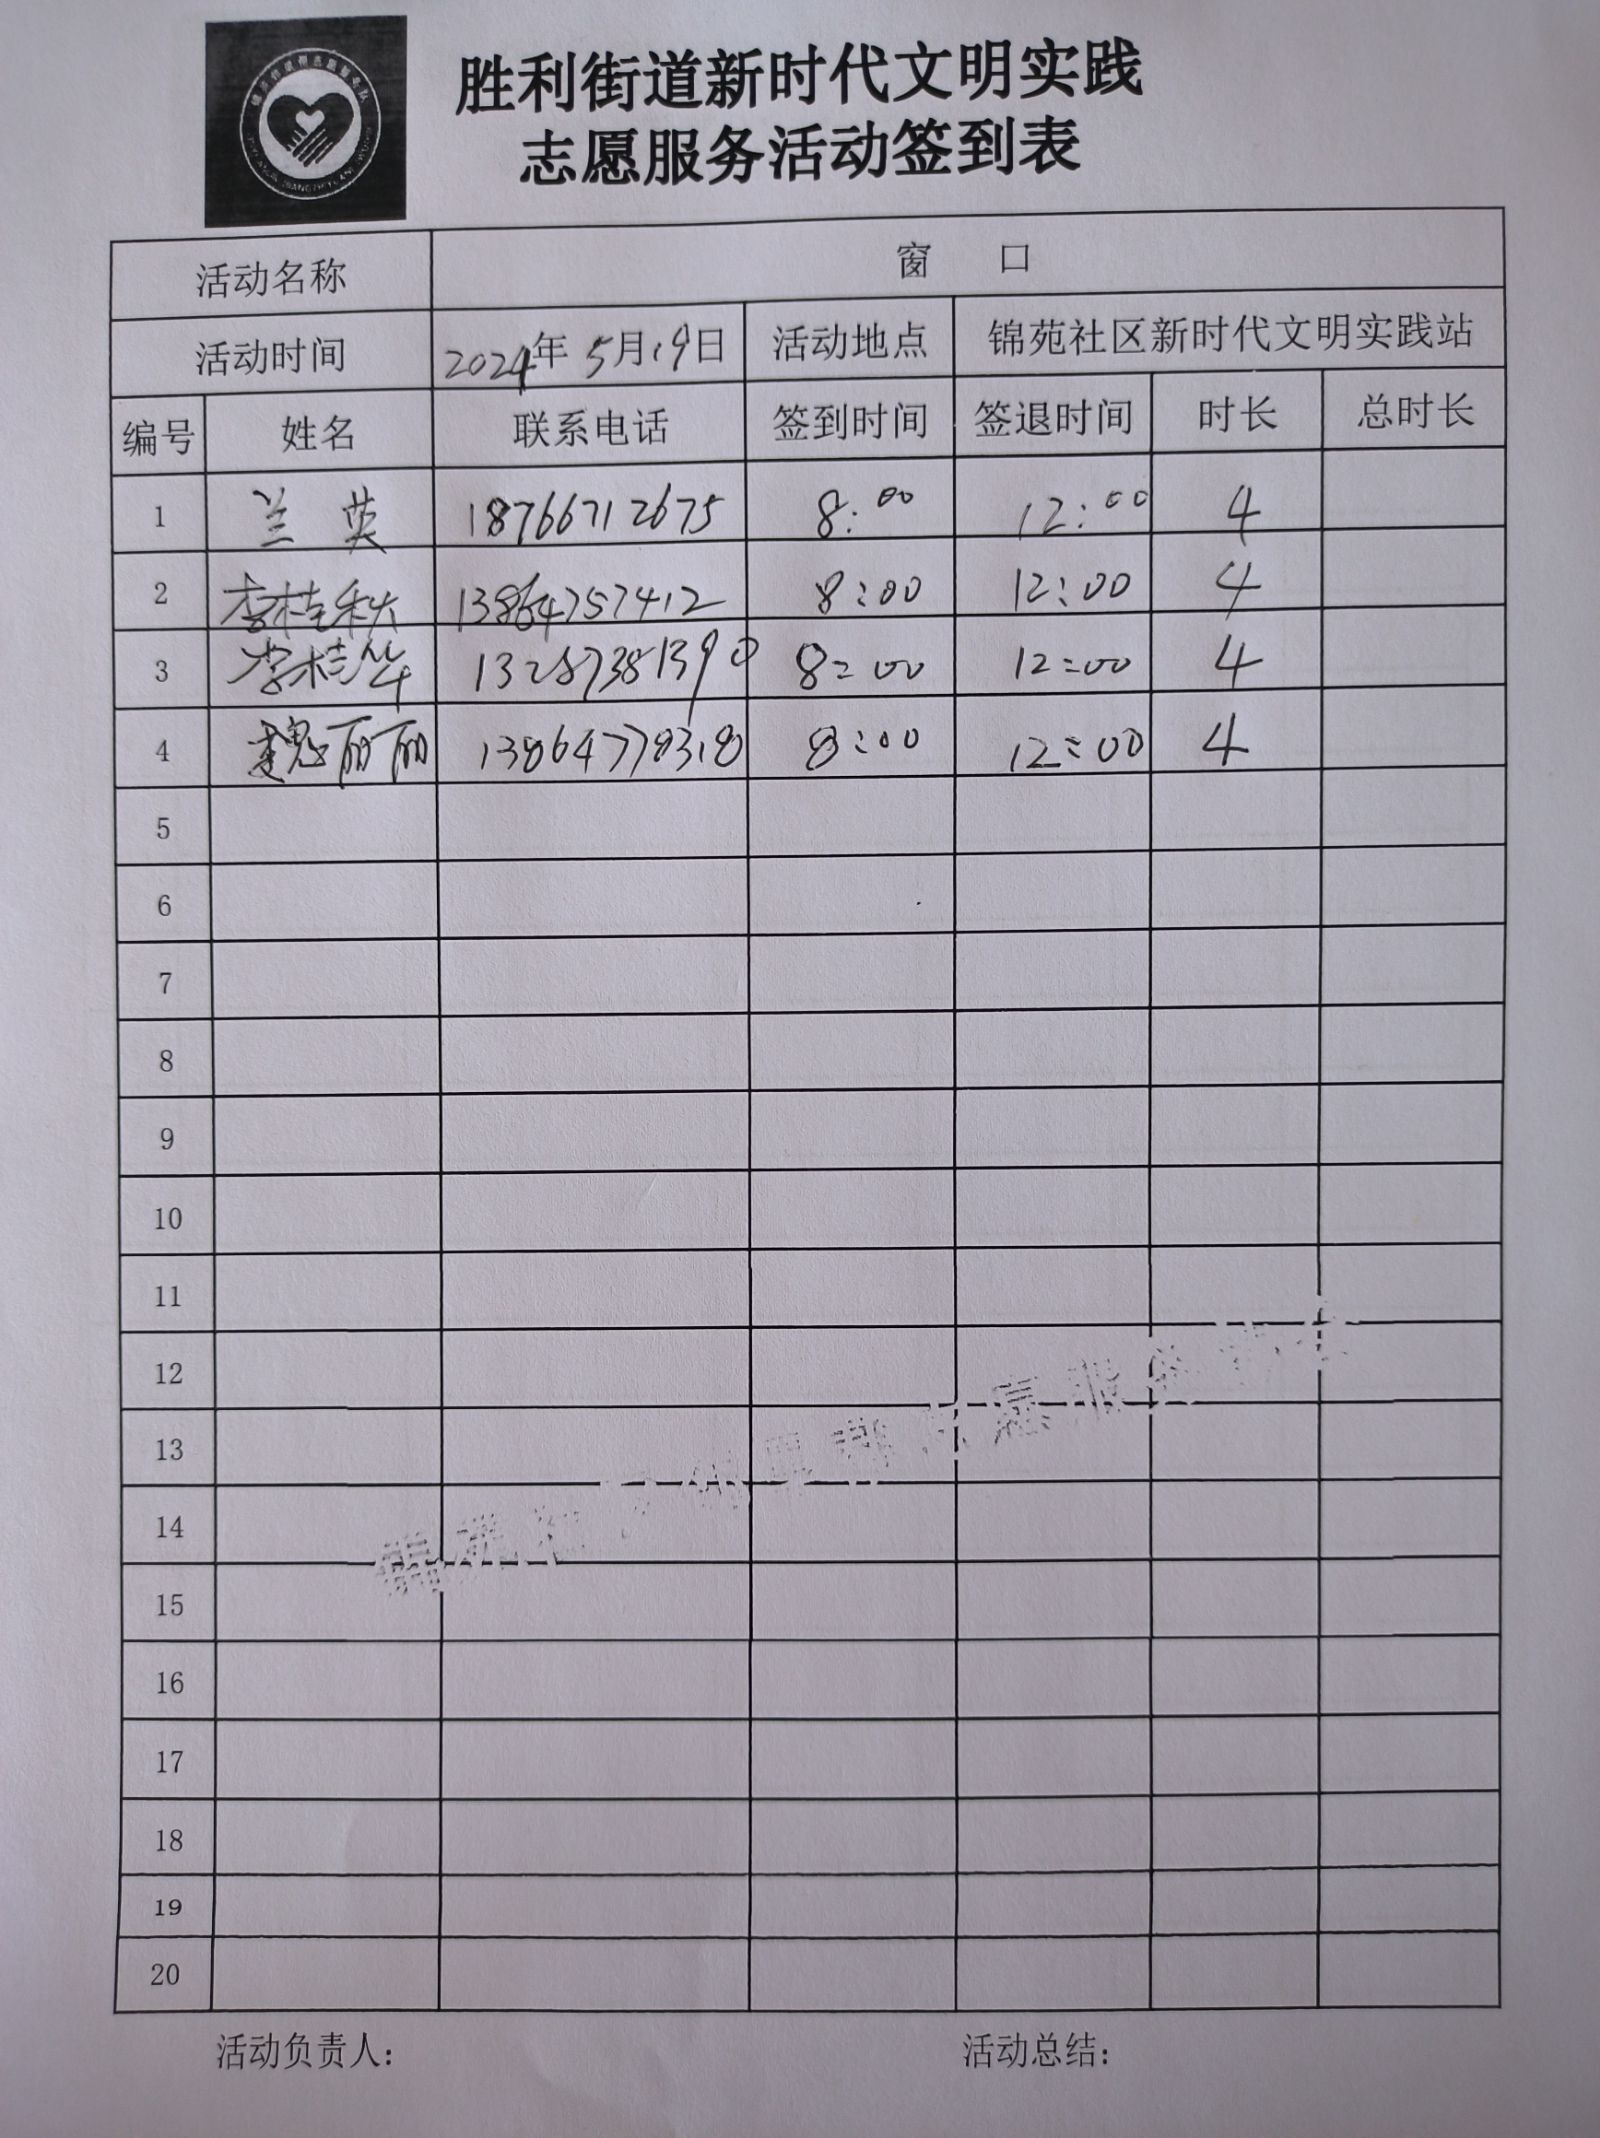 胜利街道新时代文明实践
志愿服务活动签到表
活动名称 窗 口
活动时间 2024年5月19日 活动地点 锦苑社区新时代文明实践站
编号 姓名 联系电话 签到时间 签退时间 时长 总时长
1 兰英 18766712675 8:00 12:00 4
2 李桂秋 13864757412 8:00 12:00 4
3 李桂华 13287381390 8:00 12:00 4
4 魏丽丽 13864778318 8:00 12:00 4
5
6
7
8
9
10
11
12
13
14
15
16
17
18
19
20
活动负责人: 活动总结: